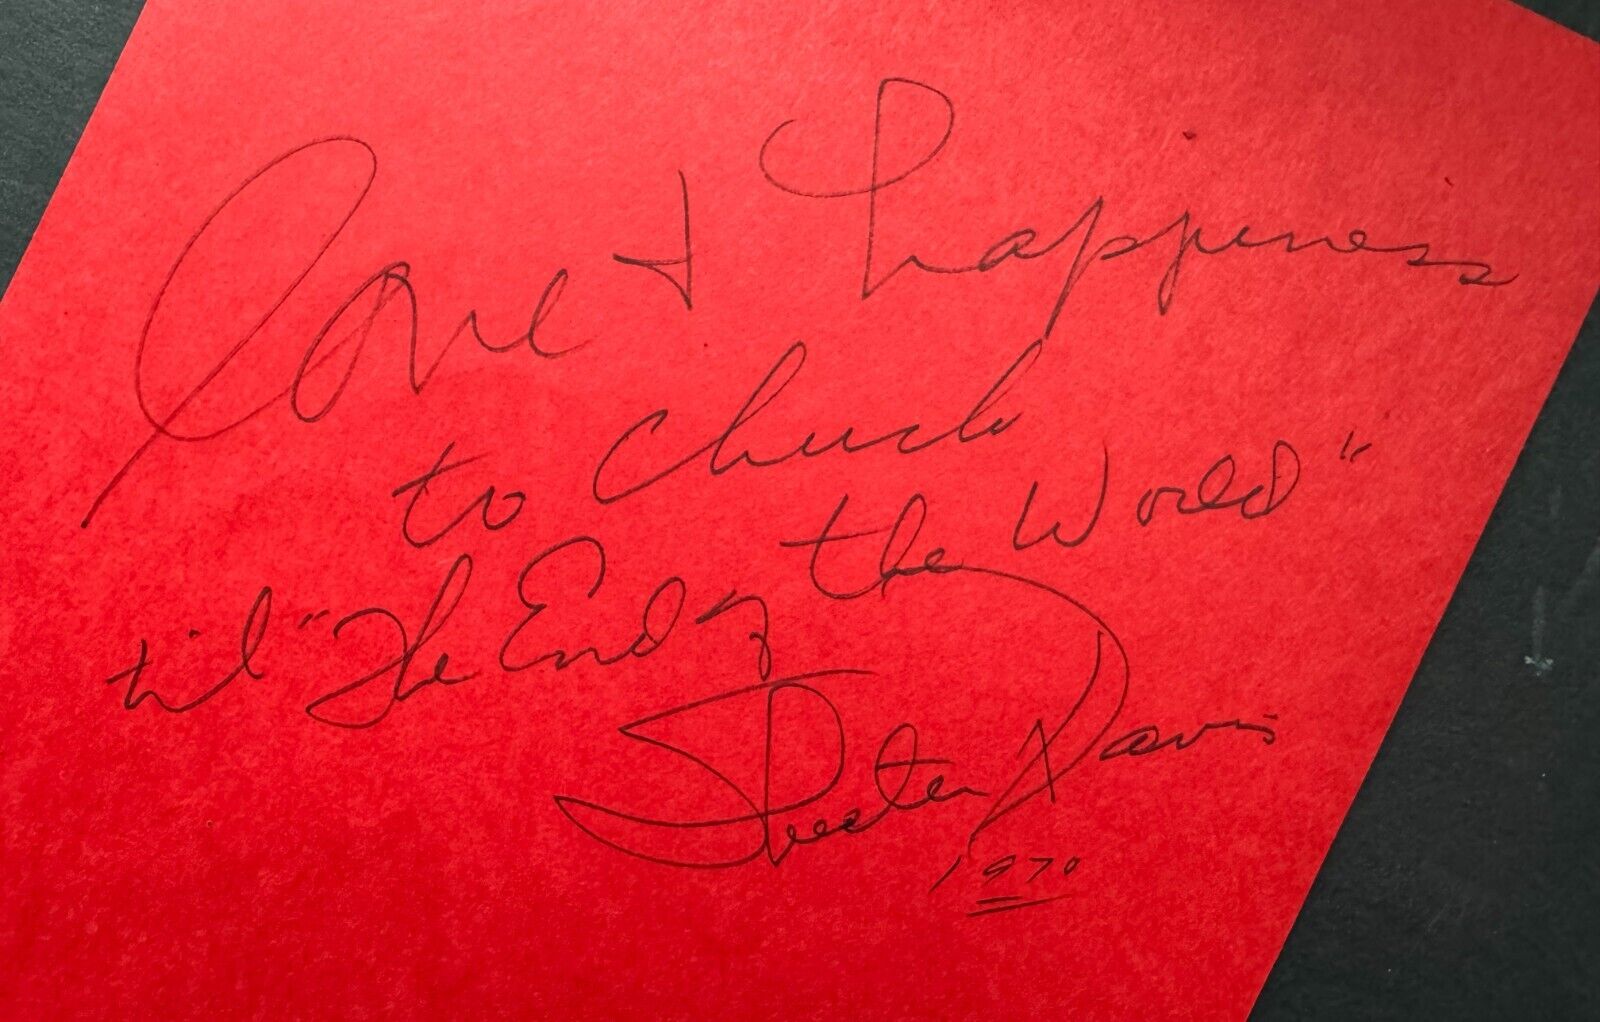 Love + happiness
to Chuck
til "The End of the World"
Skeeter Davis
1970